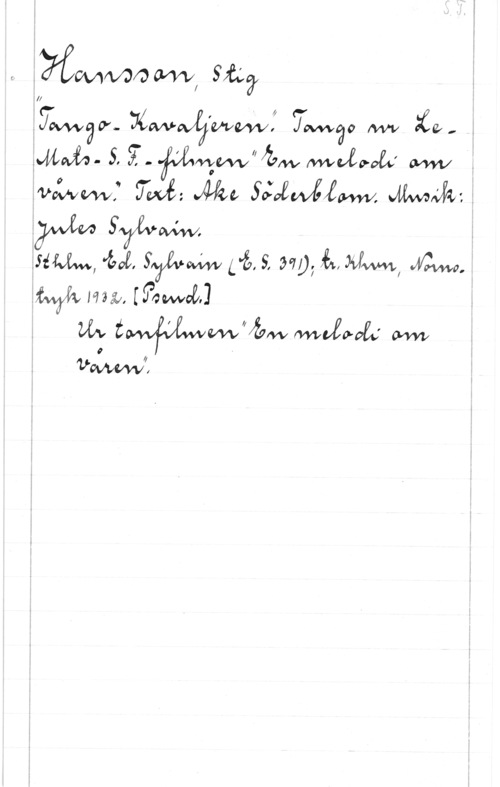 S. F.
Hansson, Stig
"Tango-Kavaljeren". Tango ur Le-
Mats- S. F. - filmen "En melodi om
våren". Text: Åke Söderblom. Musik:
Jules Sylvain.
Sthlm, Ed. Sylvain (E. S. 391); tr. Khvn, Norno-
tryk 1932. [Pseud.]
Ur tonfilmen "En melodi om
våren".